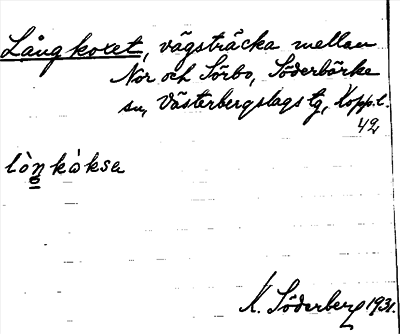 Långkoxet, vägsträcka mellan
Nor och Sörbo, Söderbärke
sn, Västerbergslags tg, Kopp. l.
42
lòn̥kòksa
K. Söderberg 1931.